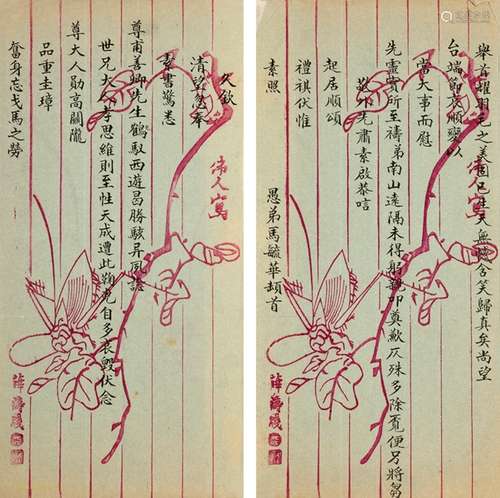 久欽
清望忽奉
素書驚悉
尊甫善卿先生鶴馭西遊曷勝駭異夙諗
世兄大人孝思維則至性天成遭此鞠凶自多哀毀伏念
尊大人勛高關隴
品重圭璋
奮身忘戎馬之勞
舉首躍羽毛之美固已生天無憾含笑歸真矣尚望
台端節哀順變以
當大事而慰
先靈實所至禱弟南山遠隔未得躬親叩奠歉仄殊多除覓便另將芻
敬外先肅素啟恭唁
起居順頌
禮祺伏惟
素照
愚弟馬毓華頓首